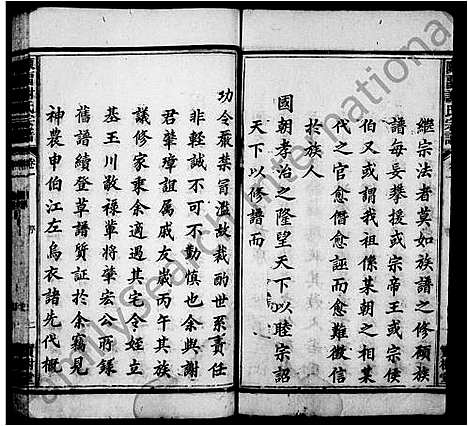 繼宗法者莫如族譜之修顧族
譜每妄攀援或宗帝王或宗侯
伯又或謂我祖係某朝之相某
代之官愈僭愈誣而愈難徵信
於族人
國朝孝治之隆望天下以睦宗詔
天下以修譜而
功令嚴禁冒濫故裁酌世系責任
非輕誠不可不勤慎也余與謝
君華璋誼屬戚友歲丙午其族
議修家乗余適過其宅令姪立
基王川敬祿單將肇宏公所錄
舊語續登草譜質証於余竊見
神農申伯江左烏衣諸先代概